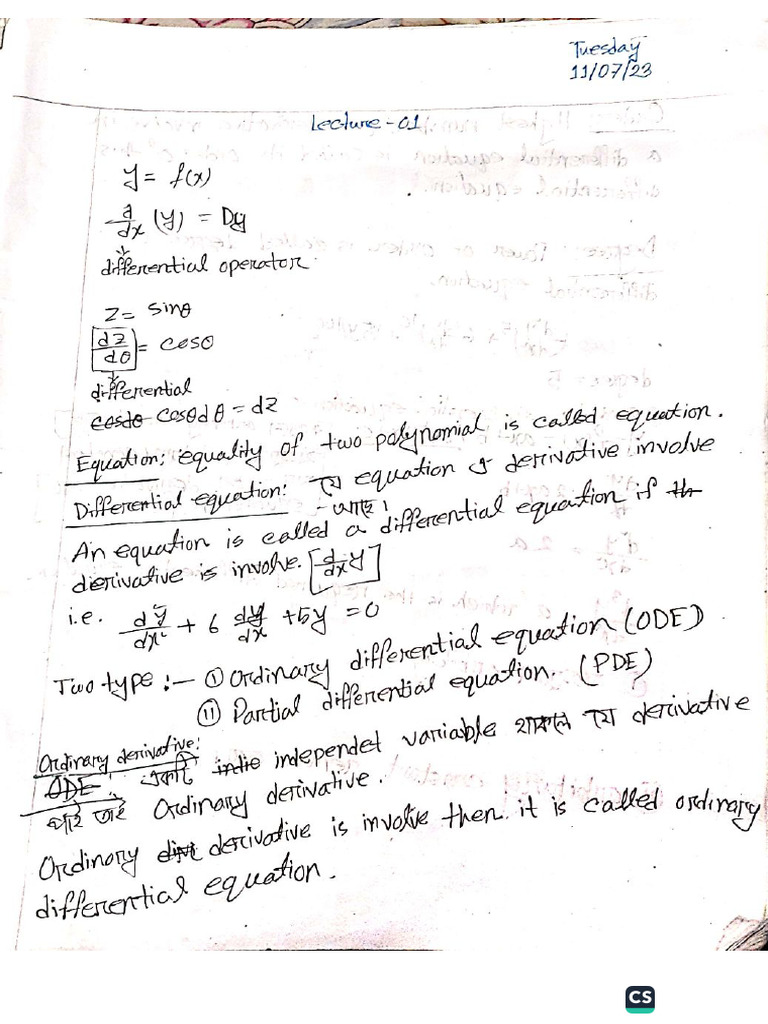 Tuesday
11/07/23
Lecture-01
y = f(x)
d/dx (y) = Dy
differential operator
z = sinθ
dz/dθ = cosθ
differential
cosdθ cosθdθ = dz
Equation: equality of two polynomial is called equation.
Differential equation: যে equation এ derivative involve
- আছে।
An equation is called a differential equation if th
derivative is involve. [d/dx y]
i.e. d²y/dx² + 6 dy/dx + 5y = 0
Two type :— (i) Ordinary differential equation (ODE)
(ii) Partial differential equation. (PDE)
Ordinary derivative:
ODE: একটি indie independet variable থাকলে যে derivative
পাই তাই Ordinary derivative.
Ordinary derivative is involve then it is called ordinary
differential equation.
CS